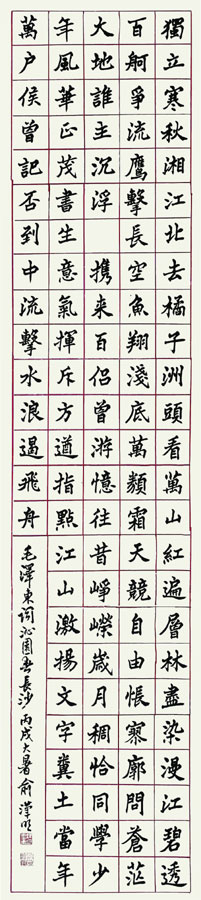 獨立寒秋湘江北去橘子洲頭看萬山紅遍層林盡染漫江碧透
百舸爭流鷹擊長空魚翔淺底萬類霜天競自由悵寥廓問蒼茫
大地誰主沉浮 携来百侣曾游憶往昔崢嶸歲月稠恰同學少
年風華正茂書生意氣揮斥方遒指點江山激揚文字糞土當年
萬户侯曾記否到中流擊水浪遏飛舟
毛澤東詞沁園春長沙 丙戌大暑俞